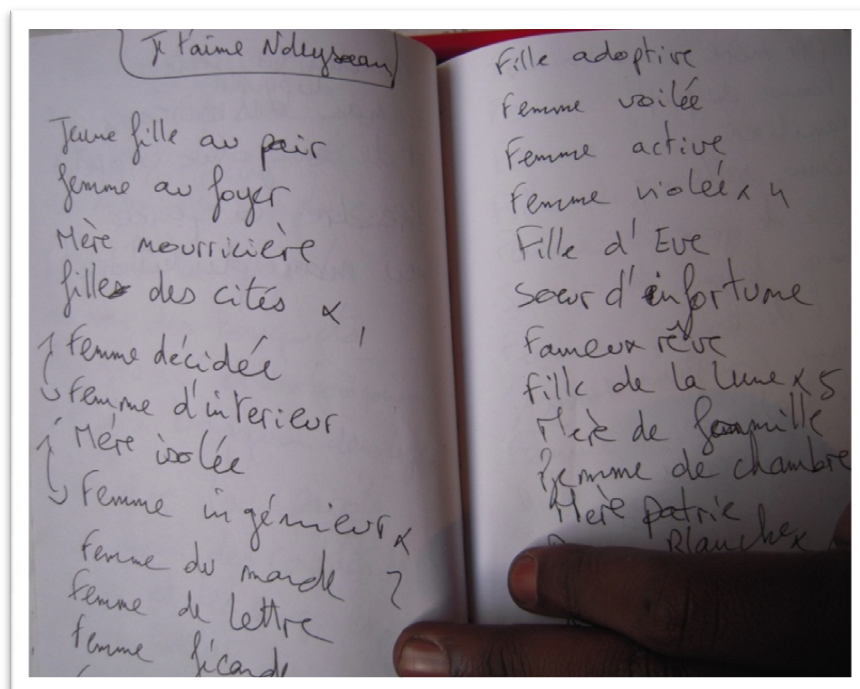 Je t'aime Ndeysaan
Jeune fille au pair
femme au foyer
Mère nourricière
filles des cités x 1
Femme décidée
Femme d'interieur
Mére isolée
Femme ingénieur x
Femme du monde 2
Femme de lettre
Femme
Fille adoptive
Femme voilée
Femme active
Femme violeé x 4
Fille d'Eve
Sœur d'infortune
Fameux rêve
Fille de la lune x 5
Mere de famille
Femme de chambre
Mere patrie
Blanche x